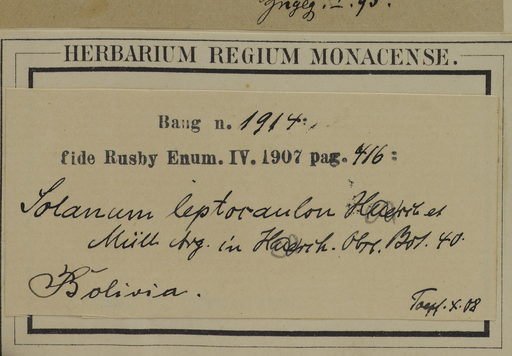 HERBARIUM REGIUM MONACENSE.
Bang n. 1914.
fide Rusby Enum. IV. 1907 pag. 416:
Solanum leptocaulon et
Müll. Arg. in Obs. Bot. 40.
Bolivia.
X. 08